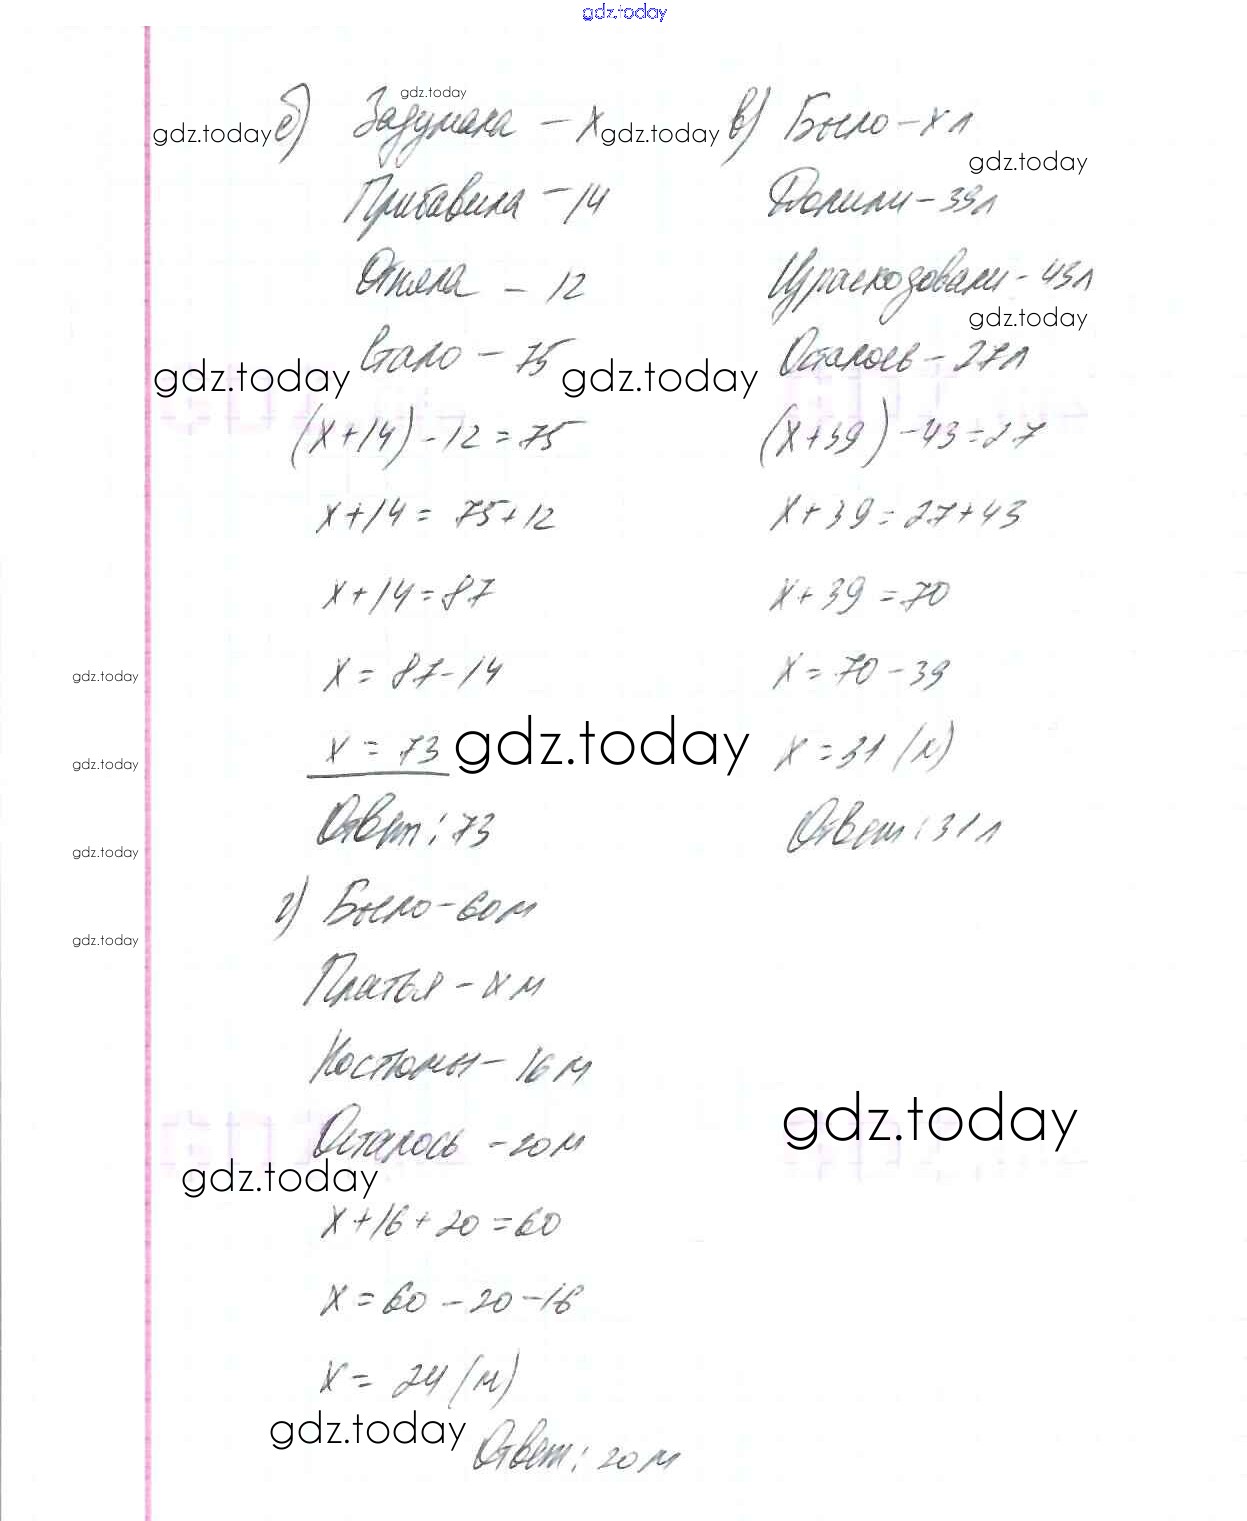 gdz.today
gdz.today
gdz.today б) Задумала - x gdz.today
Прибавила - 14
Отняла - 12
Стало - 75
gdz.today gdz.today
(x+14)-12=75
x+14= 75+12
x+14=87
x= 87-14
x = 73 gdz.today
Ответ: 73
в) Было - x л
gdz.today
Долили - 39л
Израсходовали - 43л
gdz.today
Осталось - 27л
(x+39)-43=27
x+39=27+43
x+39=70
x=70-39
x=31 (л)
Ответ: 31л
gdz.today
gdz.today
gdz.today
gdz.today
г) Было - 60м
Платья - x м
Костюмы - 16 м
gdz.today
Осталось - 20м
gdz.today
x+16+20=60
x=60-20-16
x= 24 (м)
gdz.today
Ответ: 20м